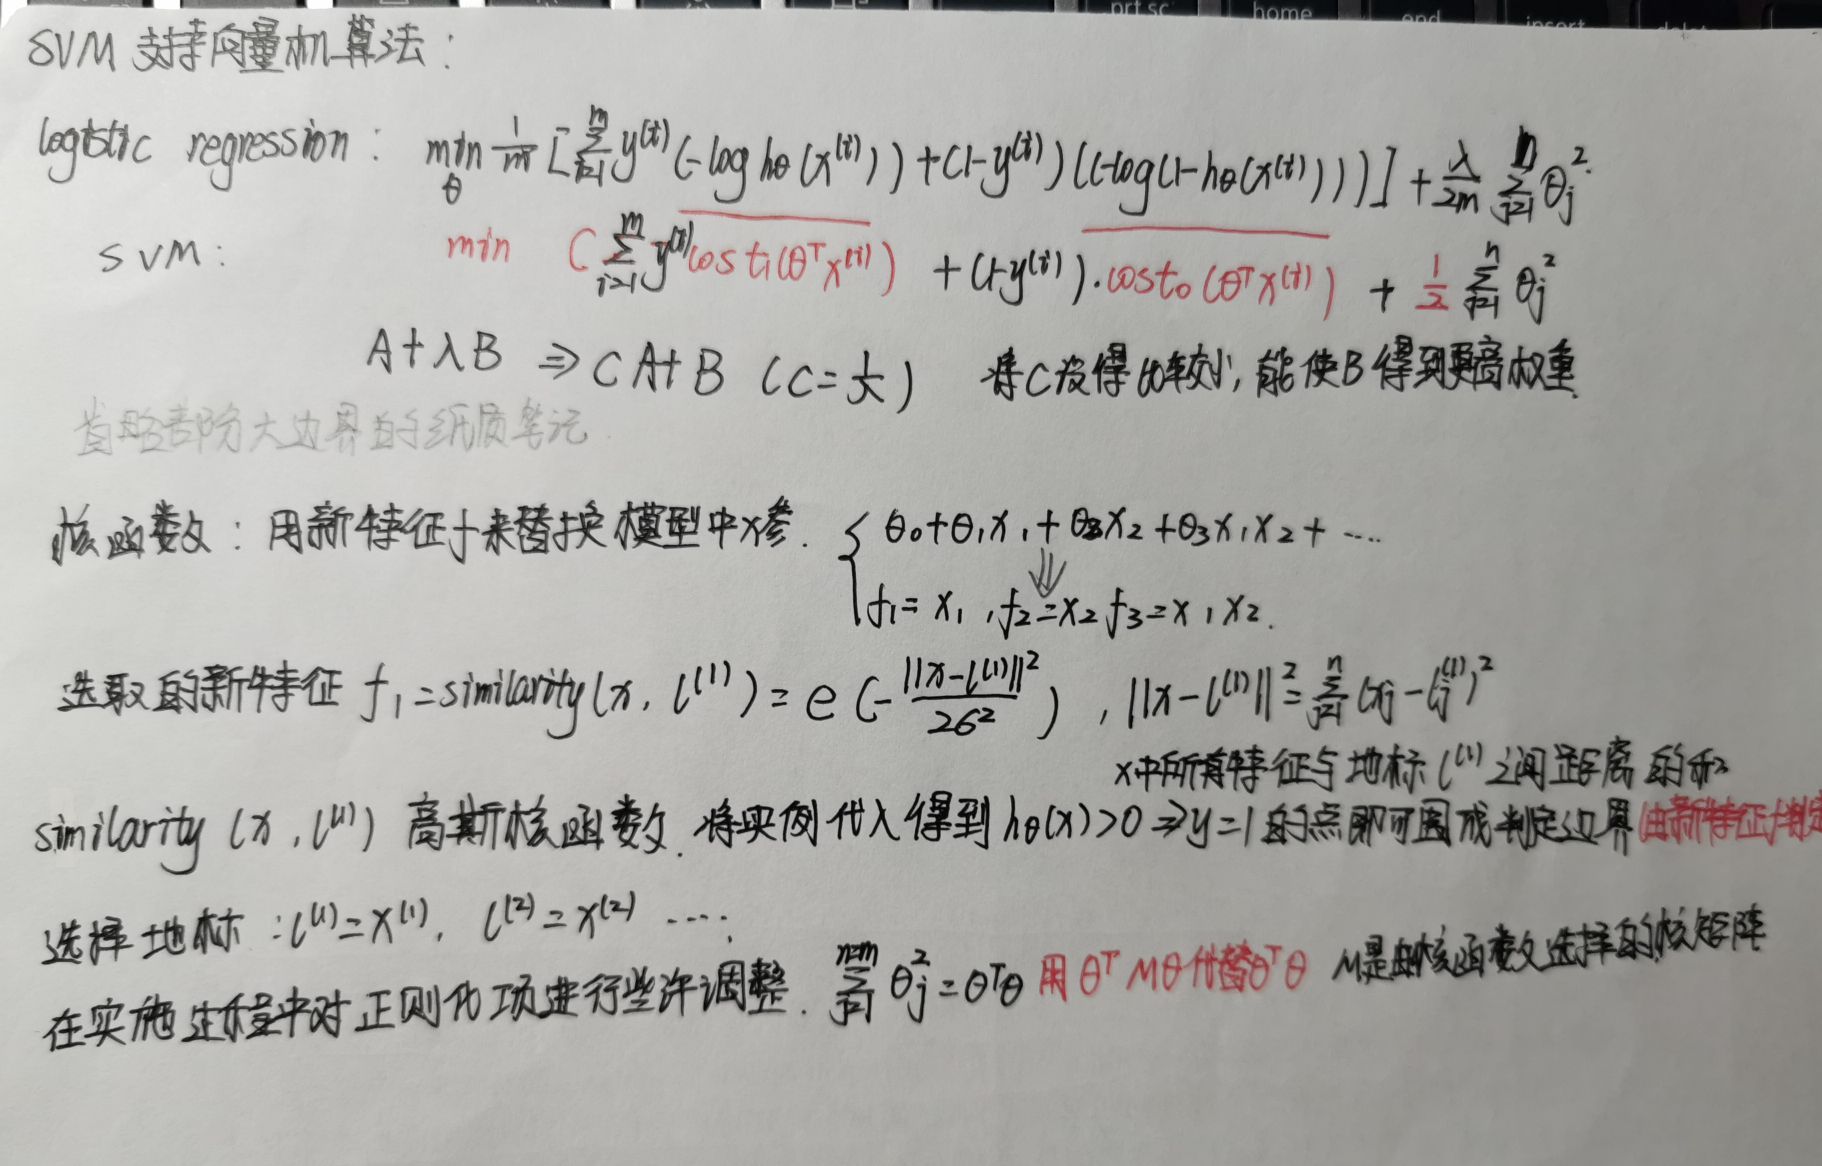 prt sc home end insert delete
SVM 支持向量机算法：
logistic regression: min_θ 1/m [∑_{i=1}^{m} y^{(i)} (-log hθ(x^{(i)})) + (1-y^{(i)}) ((-log(1-hθ(x^{(i)})))] + λ/2m ∑_{j=1}^{n} θ_j^2
SVM: min C ∑_{i=1}^{m} y^{(i)} cost_1(θ^T x^{(i)}) + (1-y^{(i)})·cost_0(θ^T x^{(i)}) + 1/2 ∑_{j=1}^{n} θ_j^2
A+λB ⇒ CA+B (C=1/λ) 将C设得比较小，能使B得到更高权重.
省略部分大边界的纸质笔记.
核函数：用新特征f来替换模型中x参. { θ_0+θ_1x_1+θ_2x_2+θ_3x_1x_2+....
⇓
f_1=x_1, f_2=x_2 f_3=x_1x_2.
选取的新特征 f_1=similarity(x, l^{(1)}) = e(-||x-l^{(1)}||^2/2σ^2), ||x-l^{(1)}||^2=∑_{j=1}^{n}(x_j-l_j^{(1)})^2
x中所有特征与地标l^{(1)}之间距离的和
similarity (x, l^{(1)}) 高斯核函数. 将实例代入得到hθ(x)>0⇒y=1的点即可围成判定边界(由新特征f判定
选择地标：l^{(1)}=x^{(1)}, l^{(2)}=x^{(2)} ....,
在实施过程中对正则化项进行些许调整. ∑_{j=1}^{n=m} θ_j^2=θ^Tθ 用θ^TMθ代替θ^Tθ M是由核函数选择的核矩阵